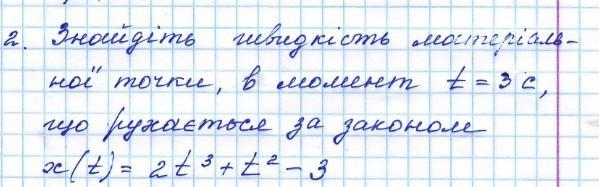 2. Знайдіть швидкість матеріаль-
ної точки, в момент t = 3 с,
що рухається за законом
x(t) = 2t³ + t² - 3